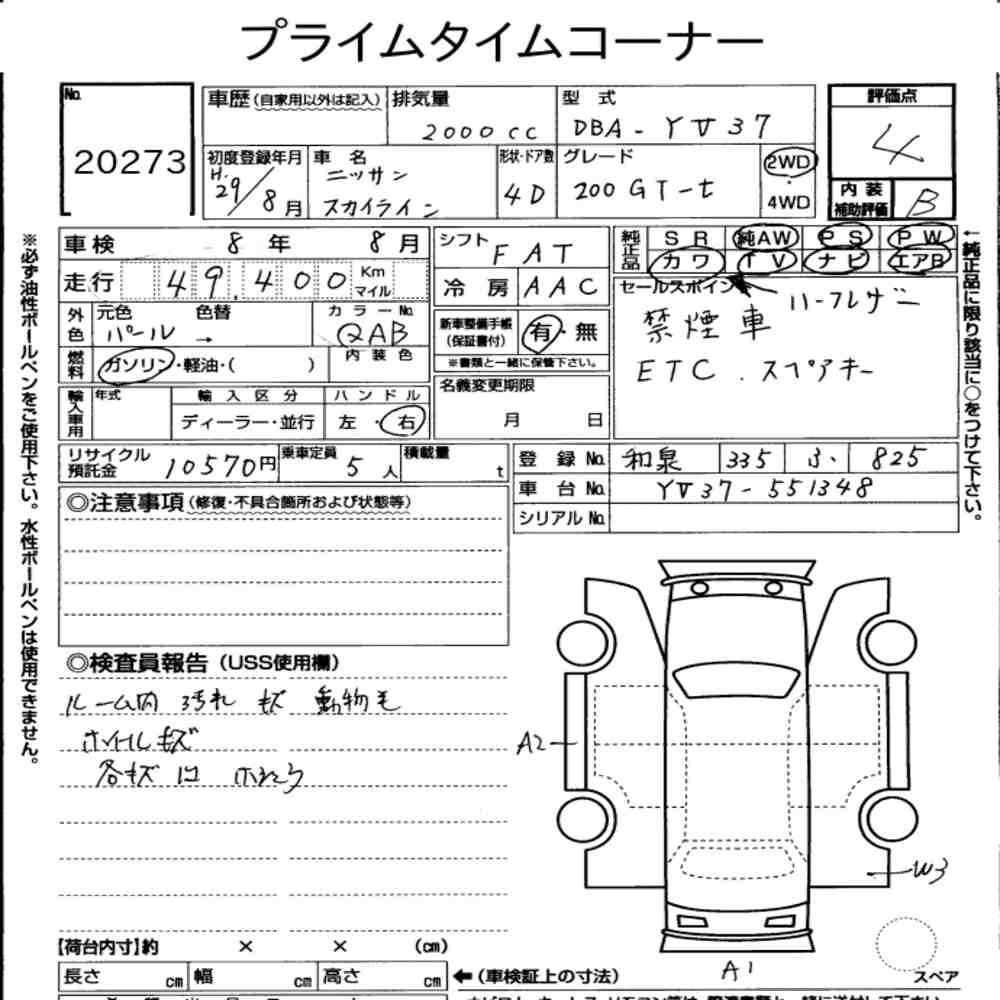 プライムタイムコーナー
No. 20273
車歴(自家用以外は記入) 排気量 2000cc
型式 DBA-YV37
評価点 4
内装補助評価 B
初度登録年月 H.29/8月
車名 ニッサン スカイライン
形状・ドア数 4D
グレード 200GT-t
2WD・4WD
車検 8年 8月
走行 49,400 Km マイル
シフト FAT
冷房 AAC
純正品 SR 純AW PS PW
カワ TV ナビ エアB
セールスポイント ハーフレザー
禁煙車
ETC.スペアキー
外色 元色 パール → 色替
カラーNo. QAB
燃料 ガソリン・軽油・( )
内装色
新車整備手帳(保証書付) 有・無
※書類と一緒に保管下さい。
輸入車用 年式
輸入区分 ディーラー・並行
ハンドル 左・右
名義変更期限 月 日
リサイクル預託金 10570円
乗車定員 5人
積載量 t
登録No. 和泉 335 ふ 825
車台No. YV37-551348
シリアルNo.
◎注意事項(修復・不具合箇所および状態等)
◎検査員報告(USS使用欄)
ルーム内 汚れ キズ 動物毛
ホイルキズ
各キズ 凹
A2
W3
A1
スペア
【荷台内寸】約 × × (cm)
長さ cm 幅 cm 高さ cm ←(車検証上の寸法)
※必ず油性ボールペンをご使用下さい。水性ボールペンは使用できません。
←純正品に限り該当に○をつけて下さい。